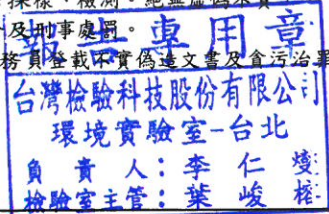 採樣、檢測。絕無虛偽不實
及刑事處罰。
務員登載不實偽造文書及貪污治罪
報告專用章
台灣檢驗科技股份有限公司
環境實驗室-台北
負責人：李仁燮
檢驗室主管：葉峻榕